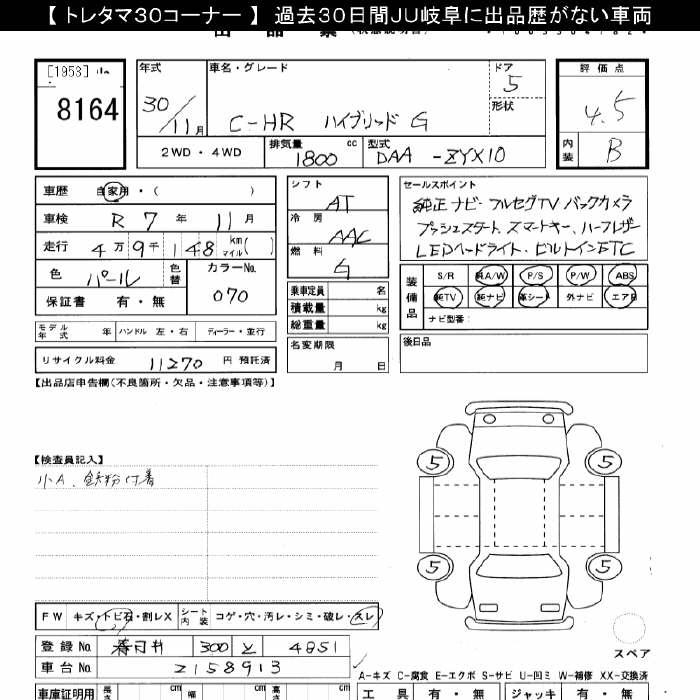 【 トレタマ30コーナー 】 過去30日間JU岐阜に出品歴がない車両
[1953]
8164
年式
30/11月
車名・グレード
C-HR ハイブリッド G
ドア
5
形状
評価点
4.5
内装
B
2WD・4WD
排気量
1800
cc
型式
DAA -ZYX10
車歴
自家用・( )
車検
R 7 年 11 月
走行
4万9千148 km マイル( )
色
パール
色替
カラーNo.
070
保証書 有・無
シフト
AT
冷房
AAC
燃料
G
乗車定員 名
積載量 kg
総重量 kg
名変期限
月 日
セールスポイント
純正ナビ・フルセグTV バックカメラ
プッシュスタート、スマートキー、ハーフレザー
LEDヘッドライト・ビルトインETC
装備品
S/R 純A/W P/S P/W ABS
純TV 純ナビ 革シート 外ナビ エアB
ナビ型番:
後日品
モデル年式 年 ハンドル 左・右 ディーラー・並行
リサイクル料金 11270 円 預託済
【出品店申告欄(不良箇所・欠品・注意事項等)】
【検査員記入】
小A、鉄粉付着
5
5
5
5
スペア
FW キズ・トビ石・割レX
シート内装 コゲ・穴・汚レ・シミ・破レ・スレ
登録No. 春日井 300 と 4851
車台No. Z158913
A-キズ C-腐食 E-エクボ S-サビ U-凹ミ W-補修 XX-交換済
車庫証明用 長さ cm 幅 cm 高さ cm
工具 有・無 ジャッキ 有・無